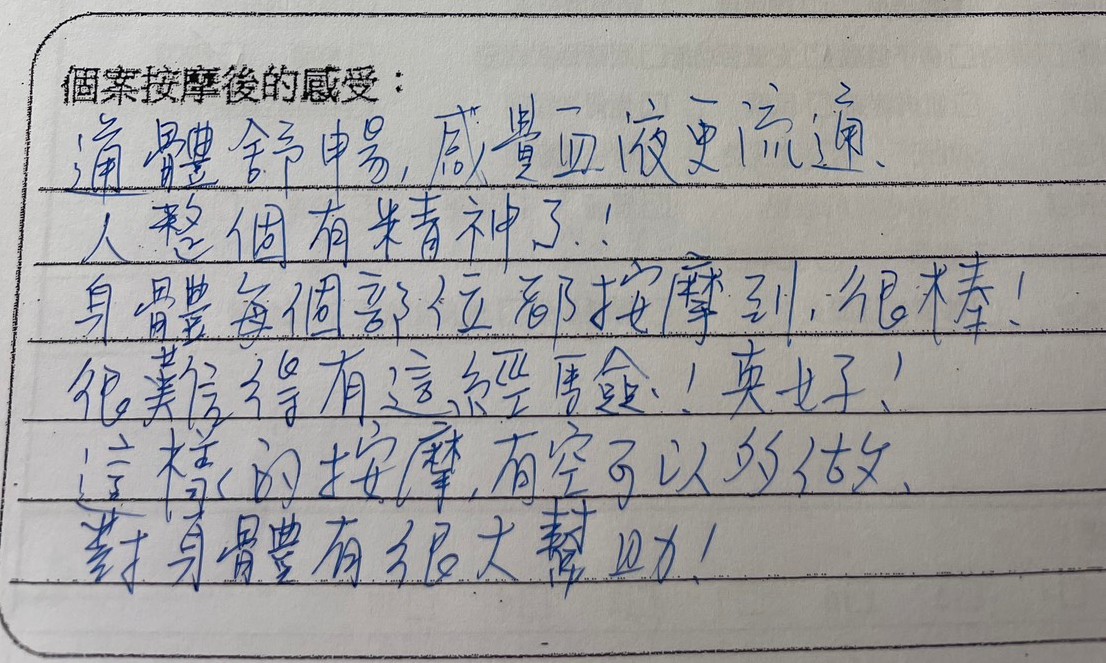 個案按摩後的感受：
通體舒暢,感覺血液更流通、
人整個有精神了!
身體每個部位都按摩到,很棒!
很難得有這經驗!真好!
這樣的按摩,有空可以多做、
對身體有很大幫助!